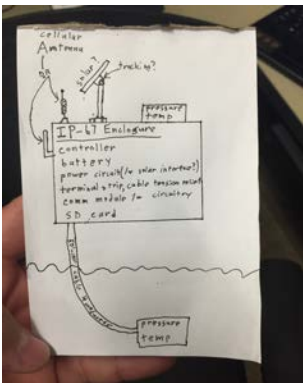 cellular
Antenna
or
solar?
tracking?
pressure
temp
IP-67 Enclosure
controller
battery
power circuit (/w solar interface?)
terminal strip, cable tension relief
comm module /w circuitry
SD card
pressure
temp